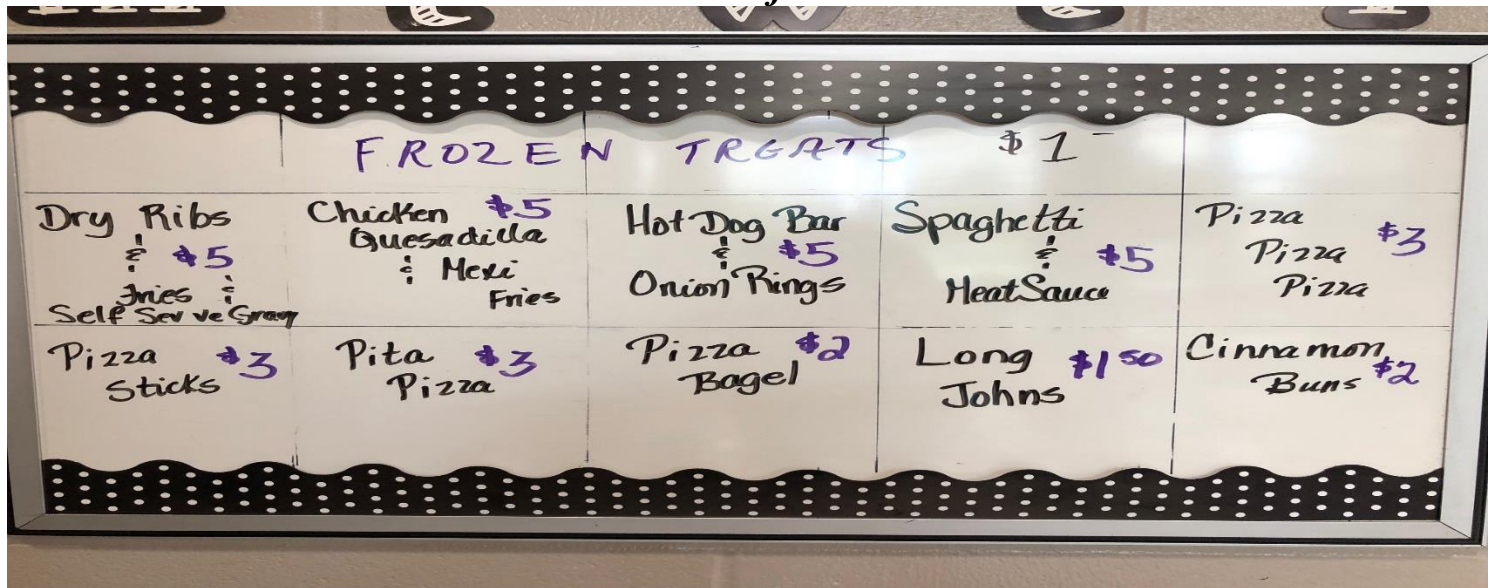 FROZEN TREATS $1
Dry Ribs
& $5
Fries &
Self Serve Gravy
Chicken $5
Quesadilla
& Mexi
Fries
Hot Dog Bar
& $5
Onion Rings
Spaghetti
& $5
Meat Sauce
Pizza
Pizza $3
Pizza
Pizza $3
Sticks
Pita $3
Pizza
Pizza $2
Bagel
Long $1 50
Johns
Cinnamon
Buns $2